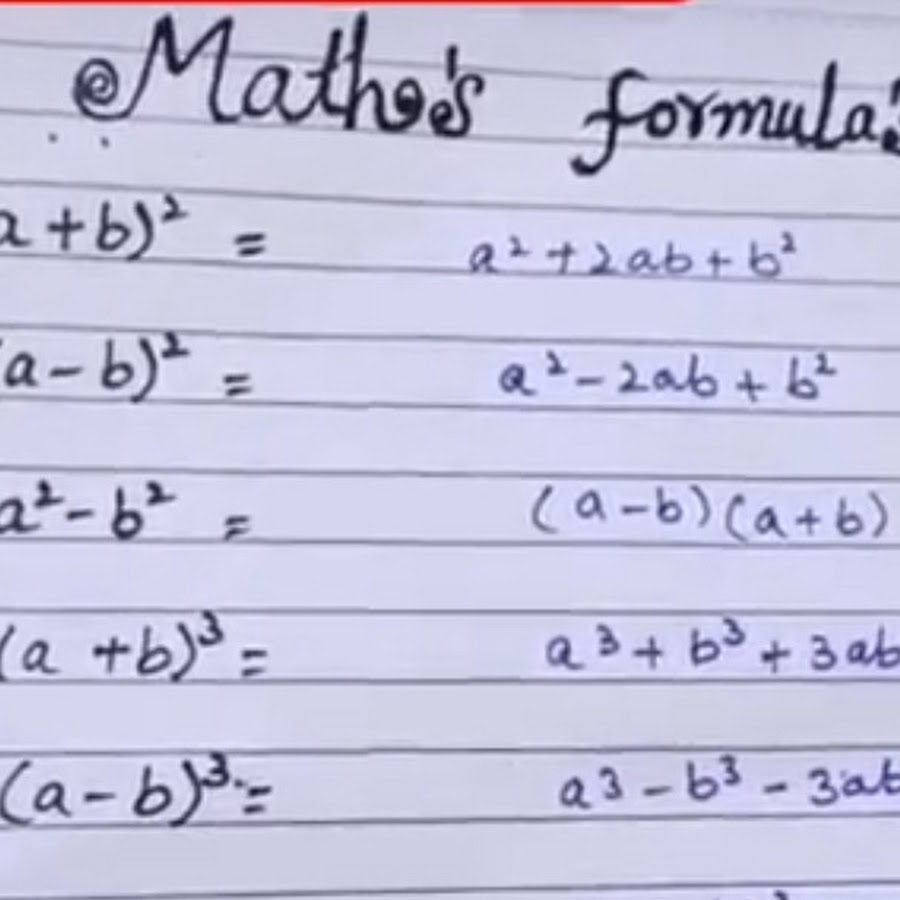 Mathe's formula's
a+b)² = a²+2ab+b²
(a-b)² = a²-2ab+b²
a²-b² = (a-b)(a+b)
(a+b)³ = a³+b³+3ab
(a-b)³ = a³-b³-3ab